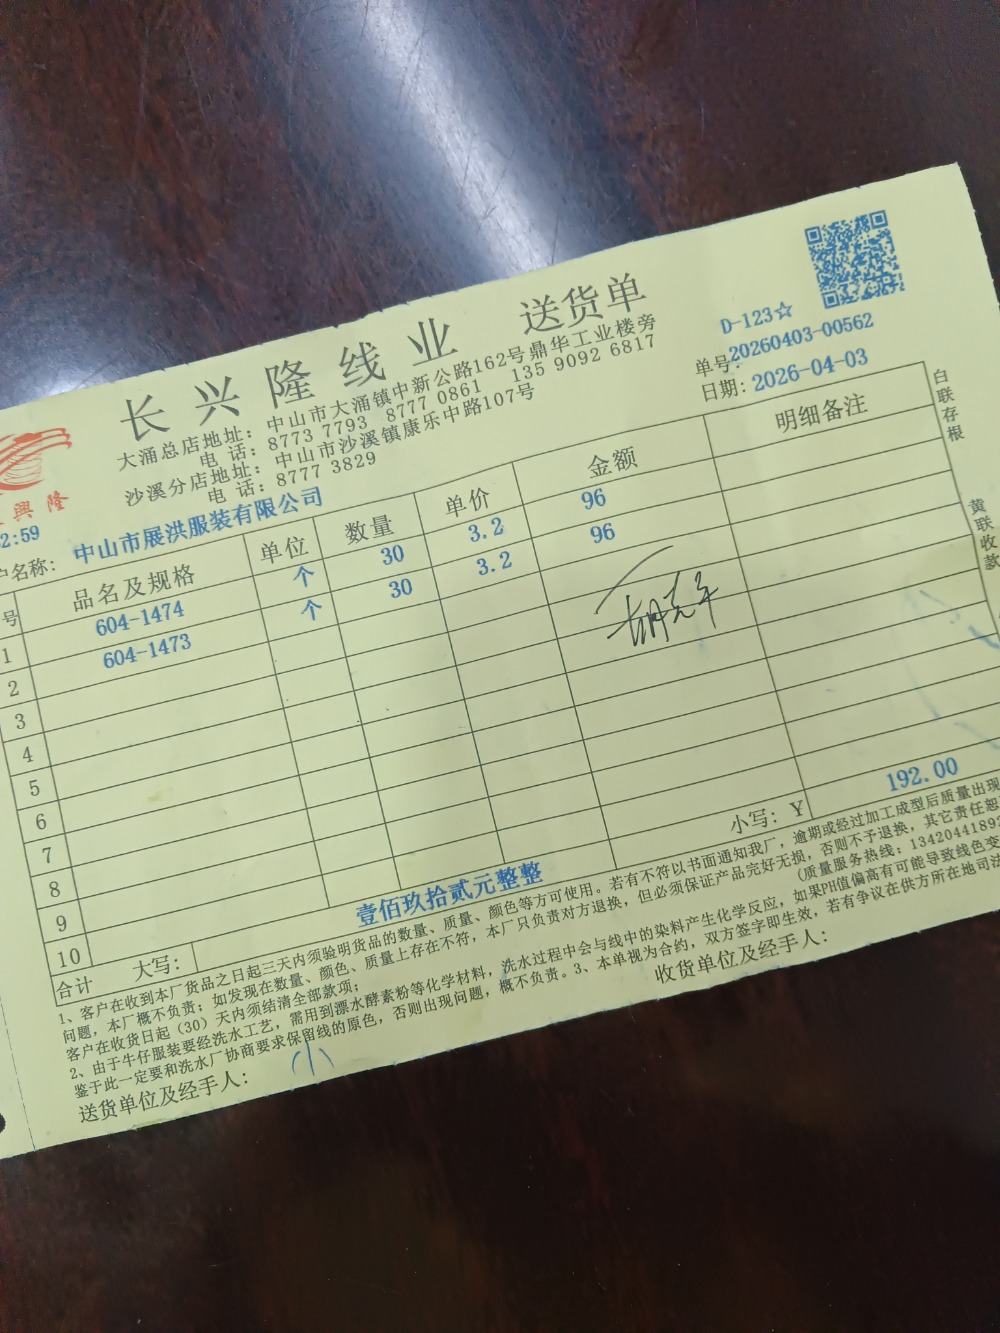 长兴隆线业 送货单
D-123☆
单号:20260403-00562
日期:2026-04-03
大涌总店地址: 中山市大涌镇中新公路162号鼎华工业楼旁
电 话: 8773 7793 8777 0861 135 9092 6817
沙溪分店地址: 中山市沙溪镇康乐中路107号
电 话: 8777 3829
興隆
2:59
户名称: 中山市展洪服装有限公司
号 品名及规格 单位 数量 单价 金额 明细备注
1 604-1474 个 30 3.2 96
2 604-1473 个 30 3.2 96
3
4
5
6
7
8
9
10
合计 大写: 壹佰玖拾贰元整整 小写: ¥ 192.00
1、客户在收到本厂货品之日起三天内须验明货品的数量、质量、颜色等方可使用。若有不符以书面通知我厂,逾期或经过加工成型后质量出现
问题,本厂概不负责;如发现在数量、颜色、质量上存在不符,本厂只负责对方退换,但必须保证产品完好无损,否则不予退换,其它责任恕
客户在收货日起(30)天内须结清全部款项; (质量服务热线:1342044189
2、由于牛仔服装要经洗水工艺,需用到漂水酵素粉等化学材料,洗水过程中会与线中的染料产生化学反应,如果PH值偏高有可能导致线色变
鉴于此一定要和洗水厂协商要求保留线的原色,否则出现问题,概不负责。3、本单视为合约,双方签字即生效,若有争议在供方所在地司法
送货单位及经手人: 收货单位及经手人:
白联存根
黄联收款